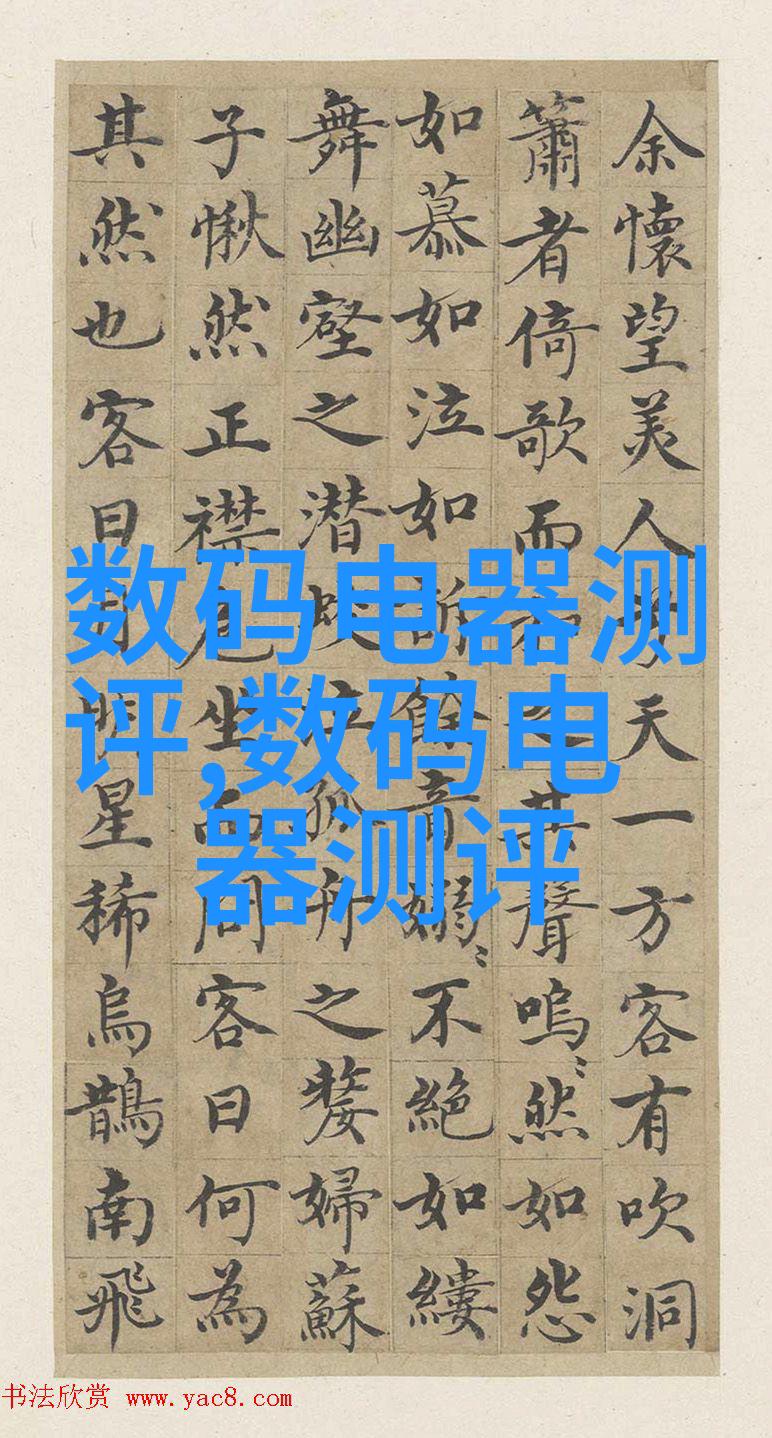 余懷望美人兮天一方客有吹洞
簫者倚歌而和之其聲嗚〻然如怨
如慕如泣如訴餘音嫋〻不絕如縷
舞幽壑之潜蛟泣孤舟之嫠婦蘇
子愀然正襟危坐而問客曰何為
其然也客曰月明星稀烏鵲南飛
数码电器测
评,数码电
器测评
书法欣赏 www.yac8.com